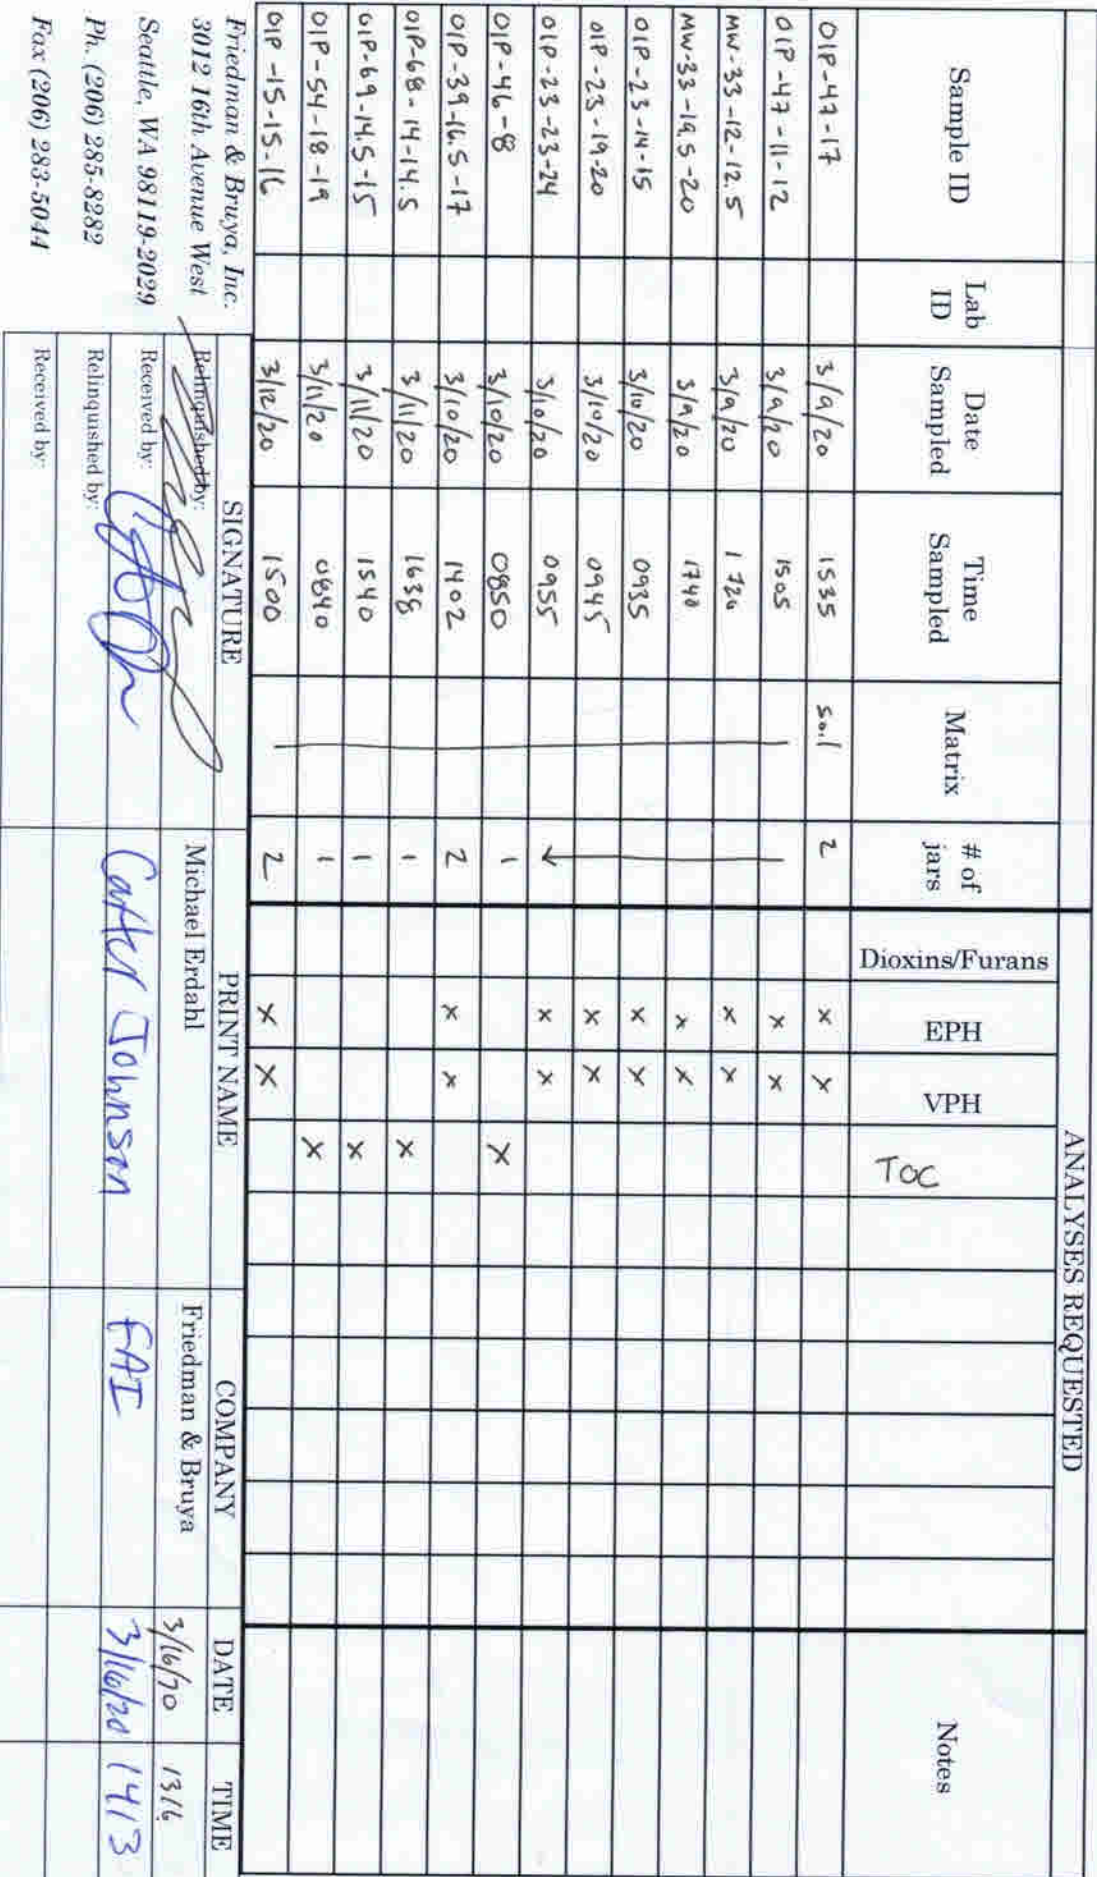 ANALYSES REQUESTED
Sample ID Lab ID Date Sampled Time Sampled Matrix # of jars Dioxins/Furans EPH VPH TOC Notes
OIP-47-17 3/9/20 1535 Soil 2 x x
OIP-47-11-12 3/9/20 1505 x x
MW-33-12-12.5 3/9/20 1720 x x
MW-33-19.5-20 3/9/20 1740 x x
OIP-23-14-15 3/10/20 0935 x x
OIP-23-19-20 3/10/20 0945 x x
OIP-23-23-24 3/10/20 0955 x x
OIP-46-8 3/10/20 0850 1 x
OIP-39-16.5-17 3/10/20 1402 2 x x
OIP-68-14-14.5 3/11/20 1638 1 x
OIP-69-14.5-15 3/11/20 1540 1 x
OIP-54-18-19 3/11/20 0840 1 x
OIP-15-15-16 3/12/20 1500 2 x x
Friedman & Bruya, Inc.
3012 16th Avenue West
Seattle, WA 98119-2029
Ph. (206) 285-8282
Fax (206) 283-5044
SIGNATURE PRINT NAME COMPANY DATE TIME
Relinquished by: Michael Erdahl Friedman & Bruya 3/16/20 1316
Received by: Carter Johnson FAI 3/16/20 1413
Relinquished by:
Received by: